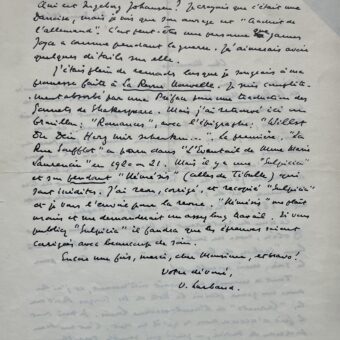 Qui est Ingeborg Johansen? Je croyais que c'était une
Danoise, mais je vois que son ouvrage est "traduit de
l'allemand". C'est peut-être une personne que James
Joyce a connue pendant la guerre. J'aimerais avoir
quelques détails sur elle.
J'étais plein de remords lorsque je songeais à ma
promesse faite à la Revue Nouvelle. Je suis complète-
ment absorbé par une Préface pour une traduction des
Sonnets de Shakespeare. Mais j'ai retrouvé ici un
brouillon: "Romances", avec l'épigraphe: "Willst
Du Dein Herz mir schenken...". La première, "La
Rue Soufflot" a paru dans "l'Éventail de Mme Marie
Laurencin" en 1920 ou 21. Mais il y a une "Sulpicia"
et son pendant "Némésis" (celles de Tibulle) qui
sont inédits. J'ai revu, corrigé, et recopié "Sulpicia"
et je vous l'envoie pour la revue. "Némésis" ne plaît
moins et me demanderait un assez long travail. Si vous
publiez "Sulpicia" il faudra que les épreuves soient
corrigées avec beaucoup de soin.
Encore une fois, merci, cher Monsieur, et bravo!
Votre dévoué,
V. Larbaud.